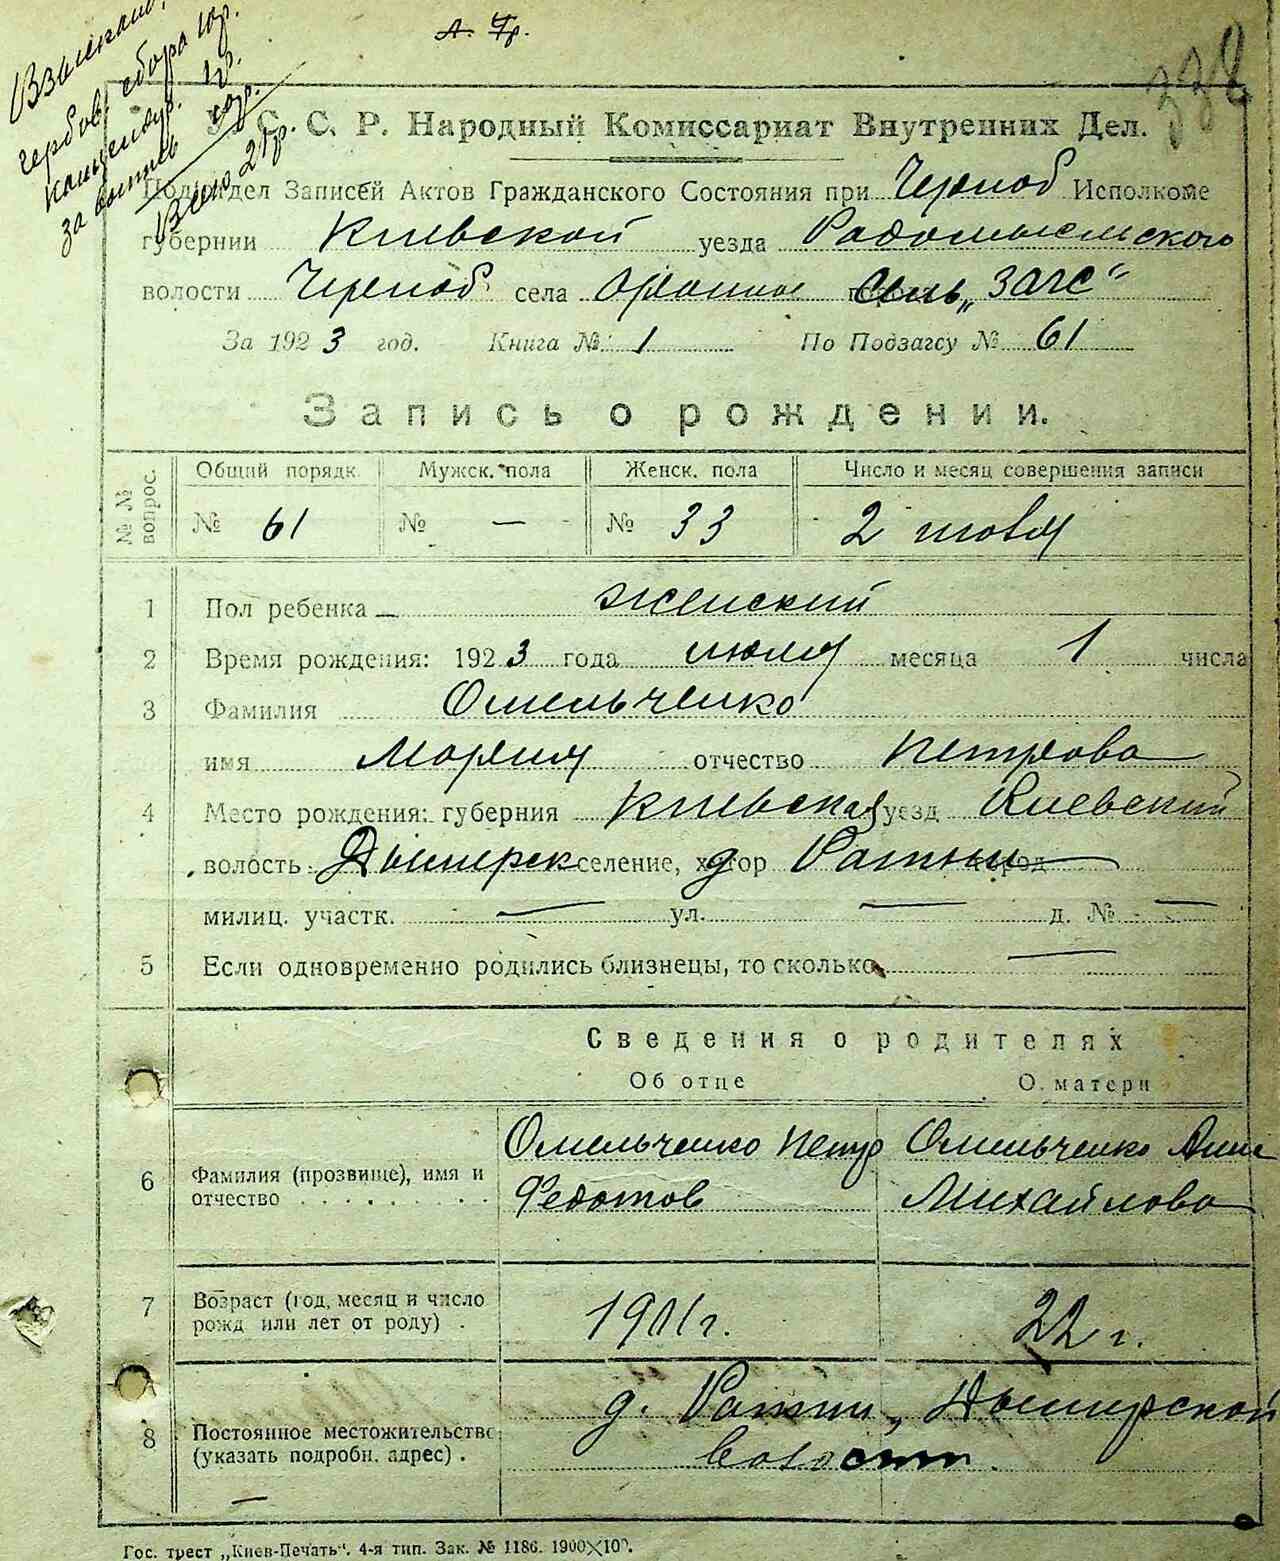 А. Гр.
338
Взыскано:
гербов. сбора 10р.
канцеляр. 1р.
за выпись 10р.
Всего 21р.
У. С. С. Р. Народный Комиссариат Внутренних Дел.
Подотдел Записей Актов Гражданского Состояния при Черноб Исполкоме
губернии Киевской уезда Радомысльского
волости Черноб села Оранное Сель „ЗАГС“
За 1923 год. Книга № 1 По Подзагсу № 61
Запись о рождении.
№ № вопрос. Общий порядк. Мужск. пола Женск. пола Число и месяц совершения записи
№ 61 № — № 33 2 июля
1 Пол ребенка — женский
2 Время рождения: 1923 года июля месяца 1 числа
3 Фамилия Омельченко
имя Мария отчество Петрова
4 Место рождения: губерния Киевская уезд Киевский
волость: Дымерск селение, хутор д Ратни город
милиц. участк. — ул. — д. № —
5 Если одновременно родились близнецы, то сколько —
Сведения о родителях
Об отце О матери
6 Фамилия (прозвище), имя и отчество Омельченко Петр Омельченко Анна
Федотов Михайлова
7 Возраст (год, месяц и число рожд или лет от роду) . 1901г. 22 г.
8 Постоянное местожительство (указать подробн. адрес) . д. Ратни, Дымерской
волости.
—
Гос. трест „Киев-Печать“. 4-я тип. Зак. № 1186. 1900×100.